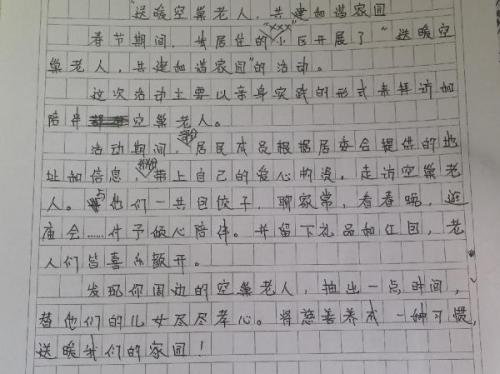 "送暖空巢老人,共建和谐家园
春节期间,我居住的"×××"小区开展了"送暖空
巢老人,共建和谐家园"的活动。
这次活动主要以亲身实践的形式来拜访和
陪伴空巢老人。
活动期间,部分居民成员根据居委会提供的地
址和信息,带上自己的爱心物资,走访空巢老
人。与他们一共包饺子,聊家常,看春晚,逛
庙会……付予倾心陪伴。并留下礼品如红包,老
人们皆喜笑颜开。
发现你周边的空巢老人,抽出一点时间,
替他们的儿女尽尽孝心。将慈善养成一种习惯,
送暖我们的家园!